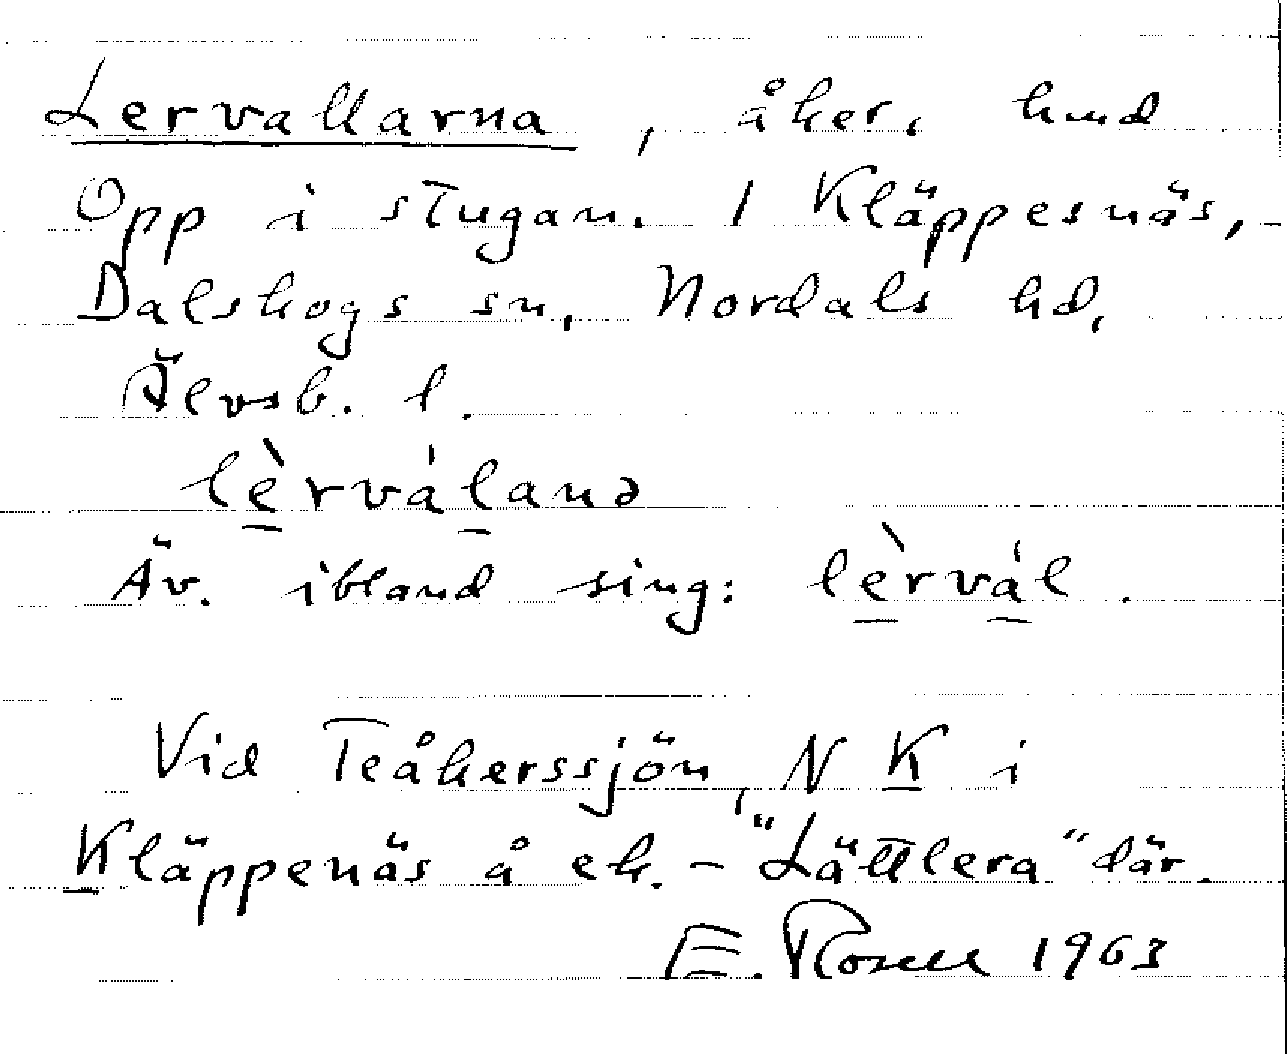 Lervallarna, åker, hmd
Opp i stugan. 1 Kläppesnäs,-
Dalskogs sn, Nordals hd,
Älvsb. l.
lèrváļanə
Äv. ibland sing: lèrvál.
Vid Teåkerssjön, N K i
Kläppenäs å ek. - "Lättlera" där.
E. Rosell 1963